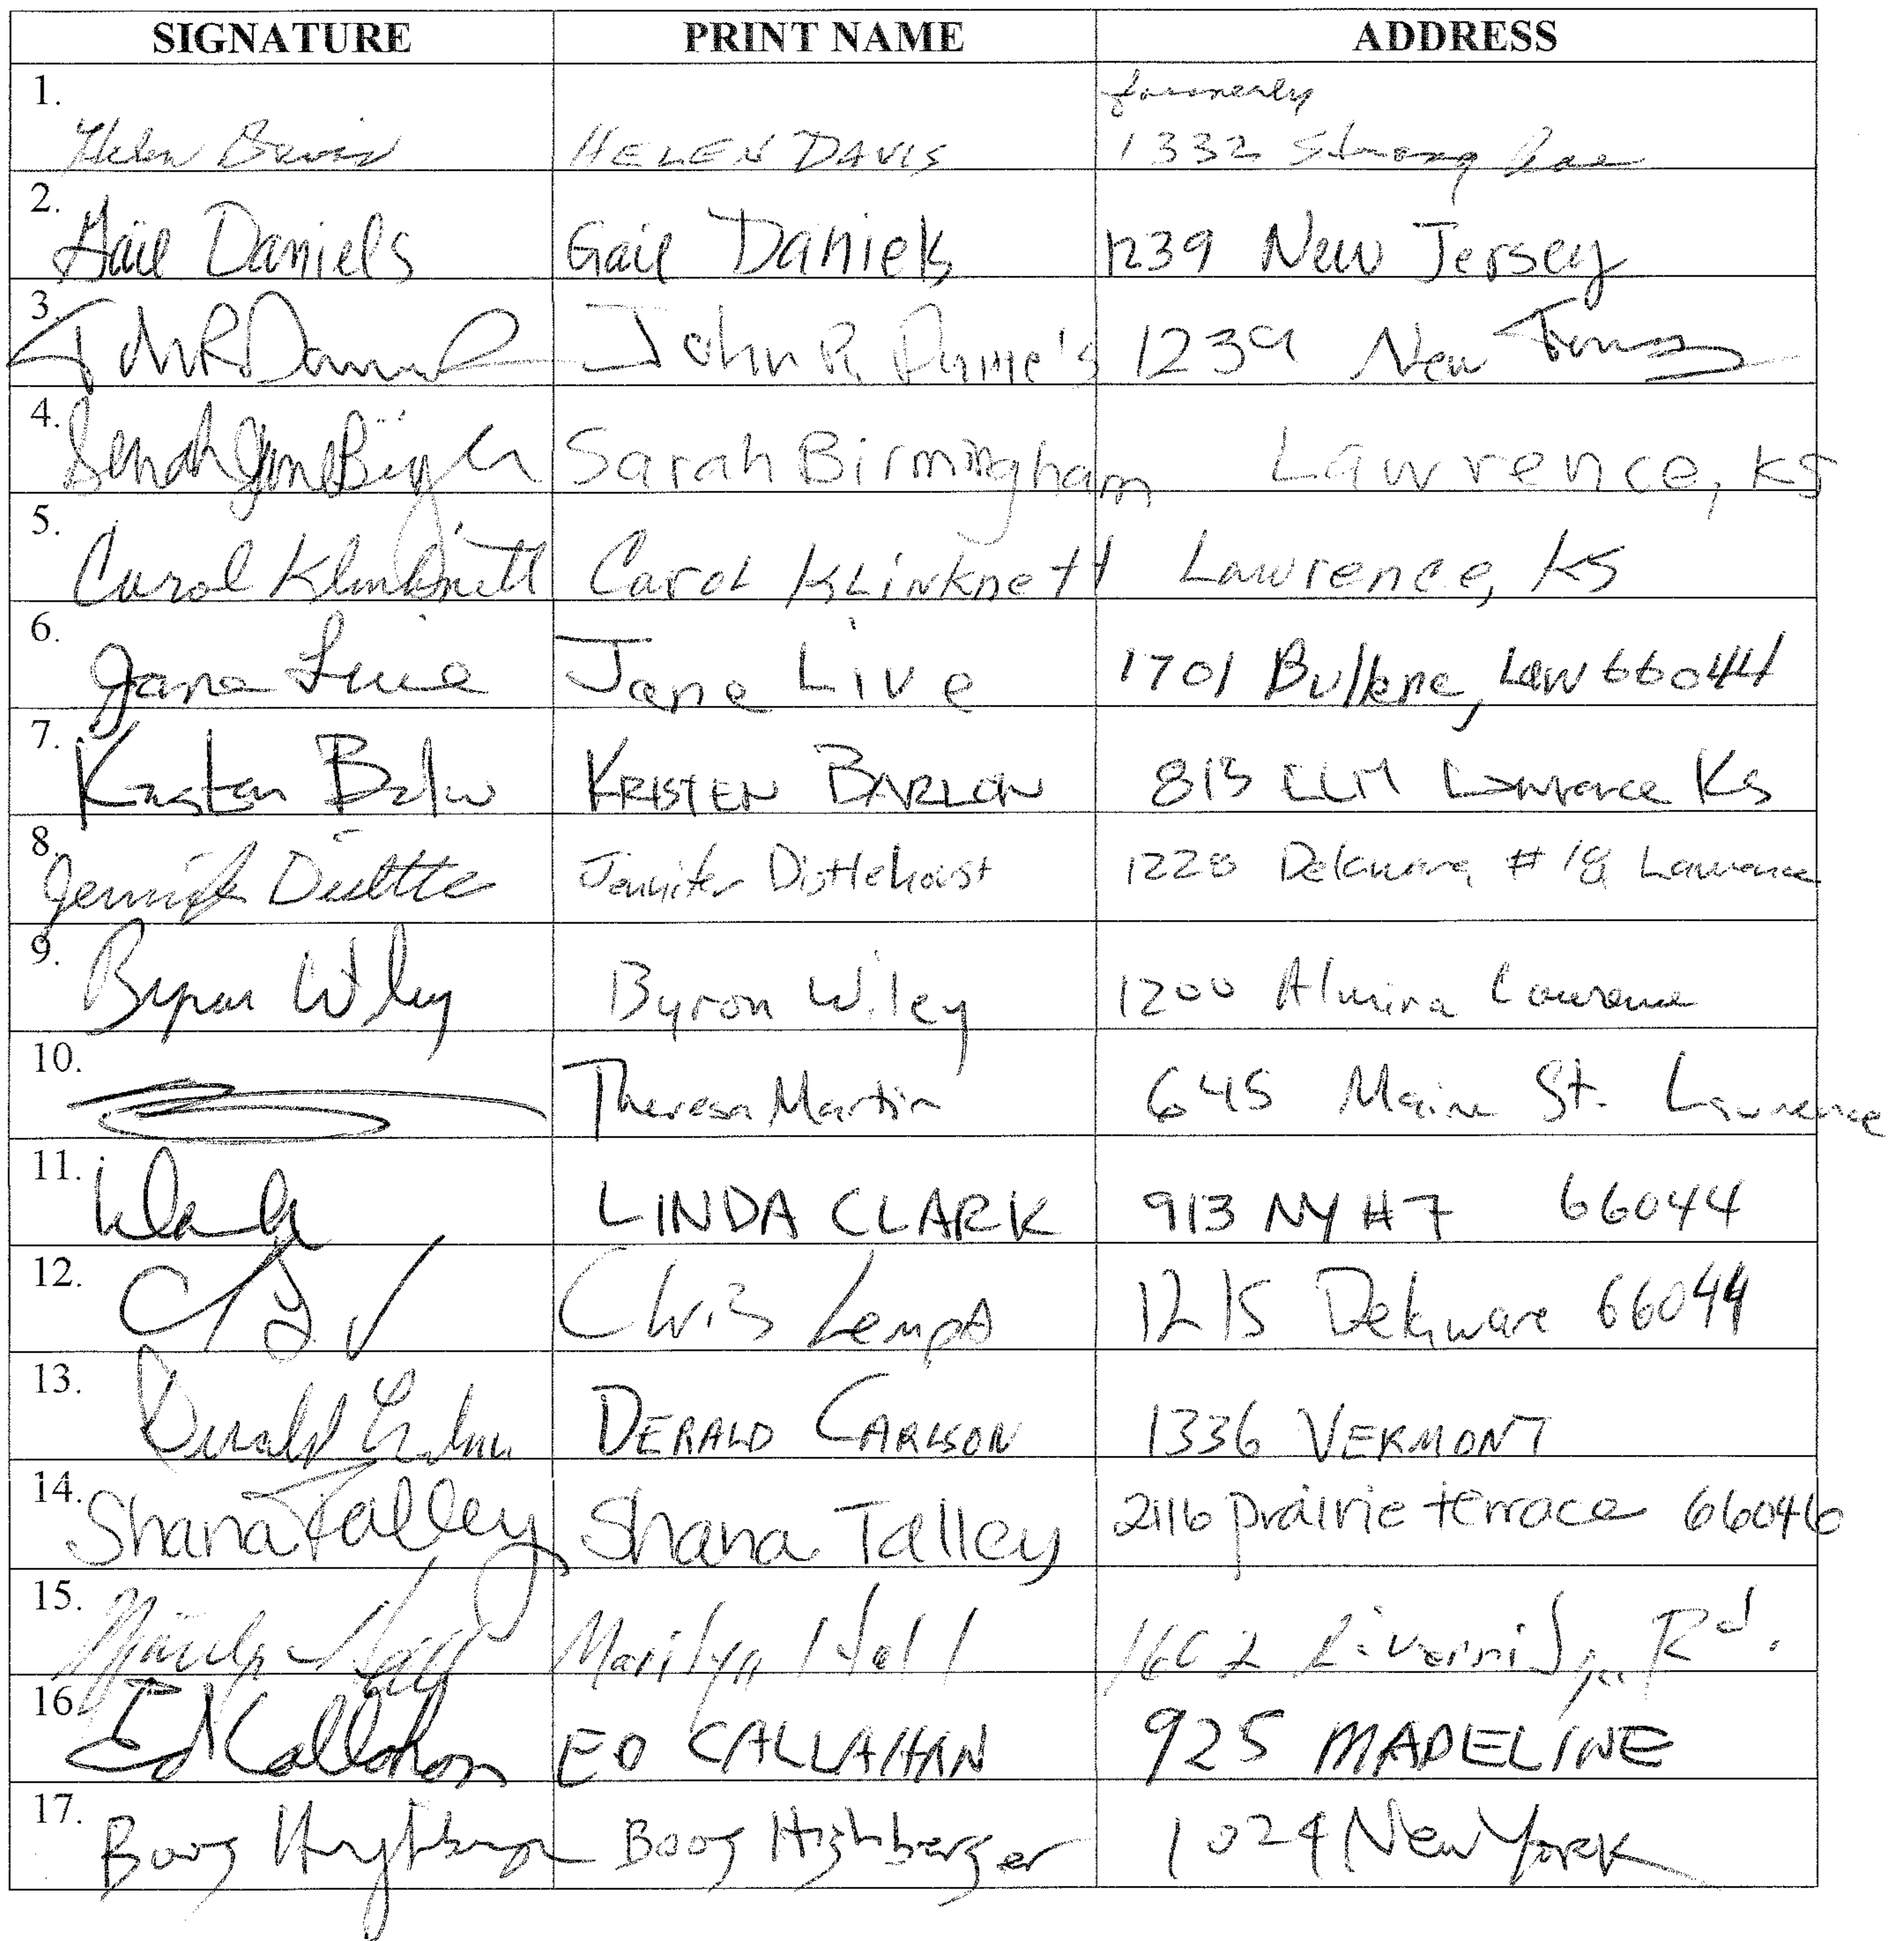 SIGNATURE PRINT NAME ADDRESS
formerly
1. Helen Davis HELEN DAVIS 1332 Strong Ave
2. Gail Daniels Gail Daniels 1239 New Jersey
3. John R. 1239 New Jersey
4. Sarah Birmingham Lawrence, KS
5. Carol Klinknett Carol Klinknett Lawrence, KS
6. Jane Live Jane Live 1701 Bullene, Law 66044
7. Kristen Barlow KRISTEN BARLOW 813 ELM Lawrence KS
8. Jennifer Distlehorst 1228 Delaware # Lawrence
9. Byron Wiley Byron Wiley 1200 Almira Lawrence
10. Theresa Martin 645 Maine St. Lawrence
11. LINDA CLARK 913 NY #7 66044
12. Chris Lempa 1215 Delaware 66044
13. Derald Carlson DERALD CARLSON 1336 VERMONT
14. Shana Talley Shana Talley 2116 prairie terrace 66046
15. Marilyn Hall Marilyn Hall Riverridge Rd.
16. Ed Callahan ED CALLAHAN 925 MADELINE
17. Boog Highberger Boog Highberger 1024 New York